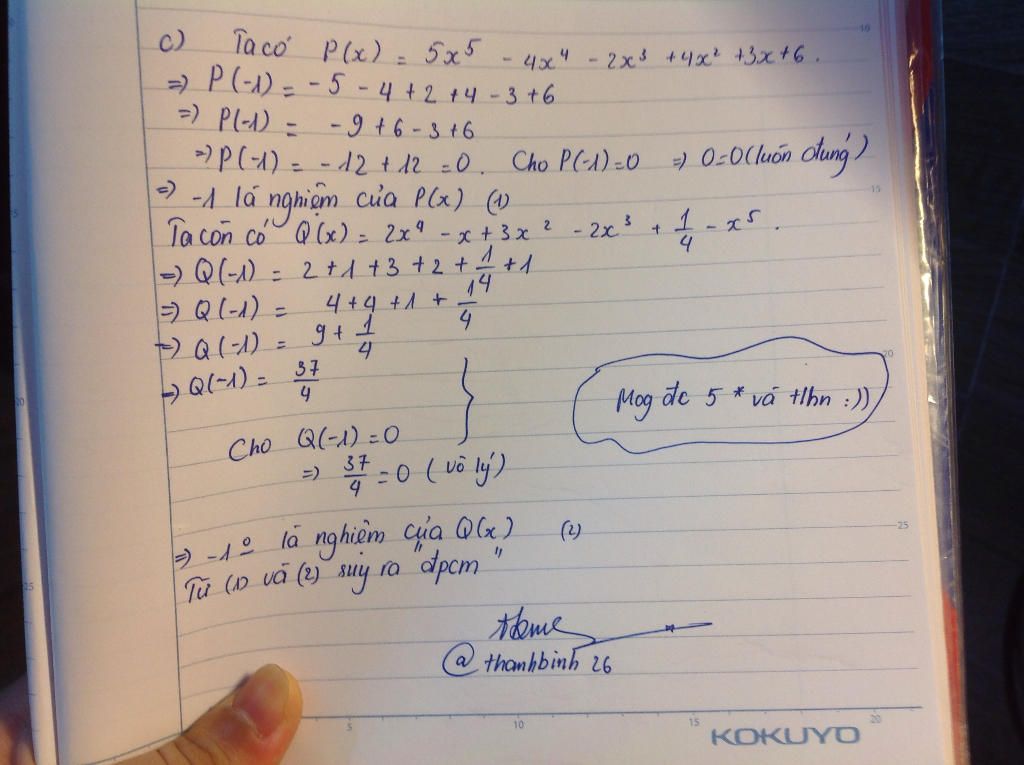 c) Ta có P(x) = 5x⁵ - 4x⁴ - 2x³ + 4x² + 3x + 6.
=> P(-1) = -5 - 4 + 2 + 4 - 3 + 6
=> P(-1) = -9 + 6 - 3 + 6
=> P(-1) = -12 + 12 = 0. Cho P(-1) = 0 => 0 = 0 (luôn đúng)
=> -1 là nghiệm của P(x) (1)
Ta còn có Q(x) = 2x⁴ - x + 3x² - 2x³ + 1/4 - x⁵.
=> Q(-1) = 2 + 1 + 3 + 2 + 1/4 + 1
=> Q(-1) = 4 + 4 + 1 + 1/4
=> Q(-1) = 9 + 1/4
=> Q(-1) = 37/4
Mog đc 5 * và tlhn :))
Cho Q(-1) = 0
=> 37/4 = 0 (vô lý)
=> -1 º là nghiệm của Q(x) (2)
Từ (1) và (2) suy ra "đpcm"
@thanhbinh 26
KOKUYO
5 10 15 20
10
15
20
25